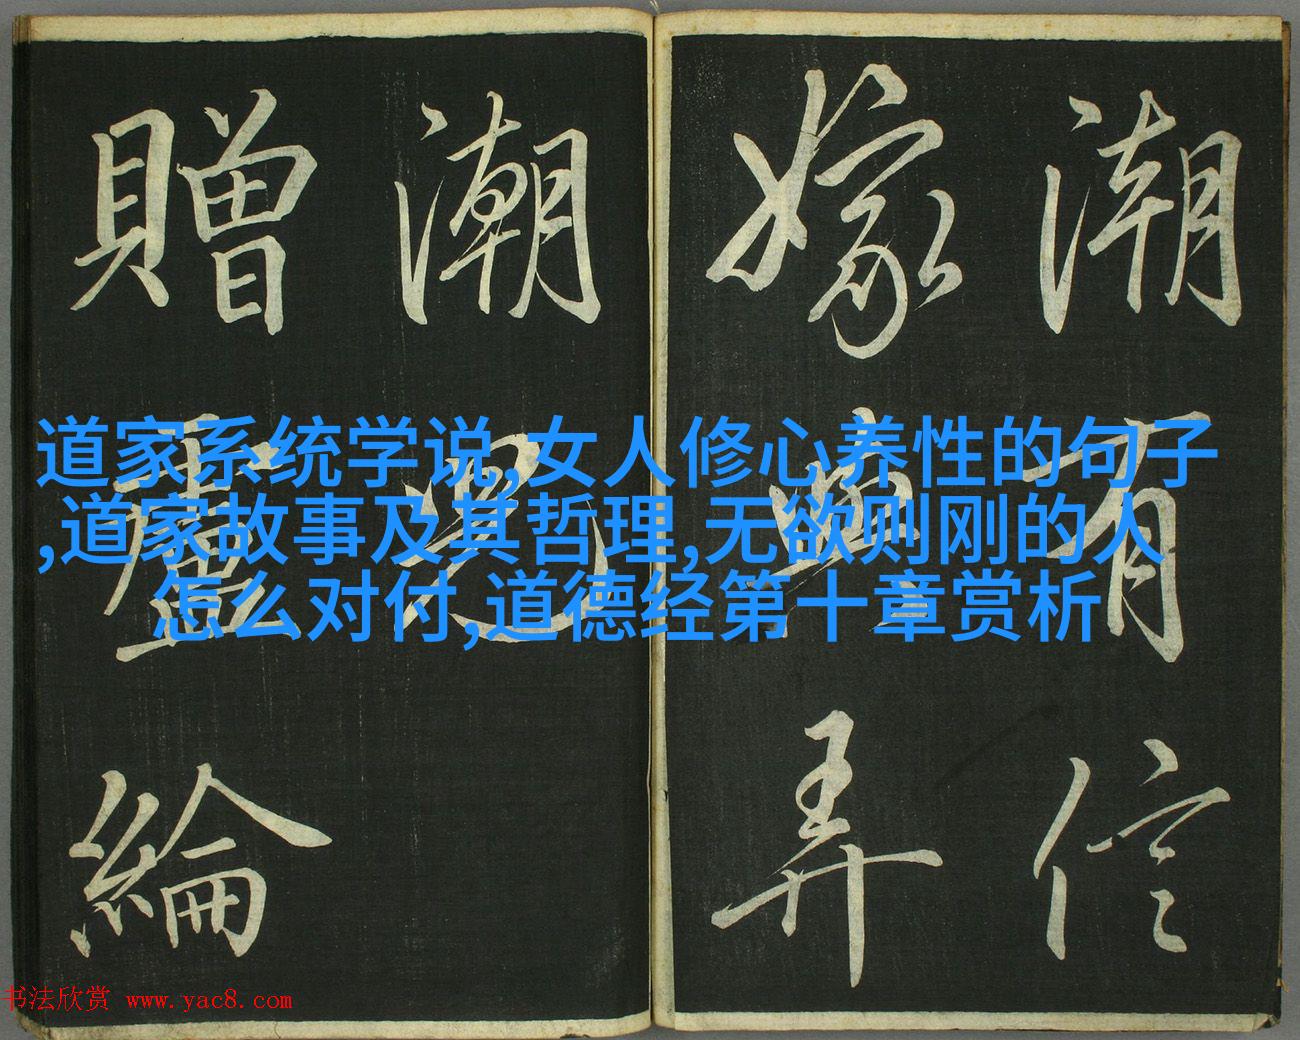 潮有信
嫁與弄
潮兒
贈盧綸
道家系统学说,女人修心养性的句子
,道家故事及其哲理,无欲则刚的人
怎么对付,道德经第十章赏析
书法欣赏 www.yac8.com